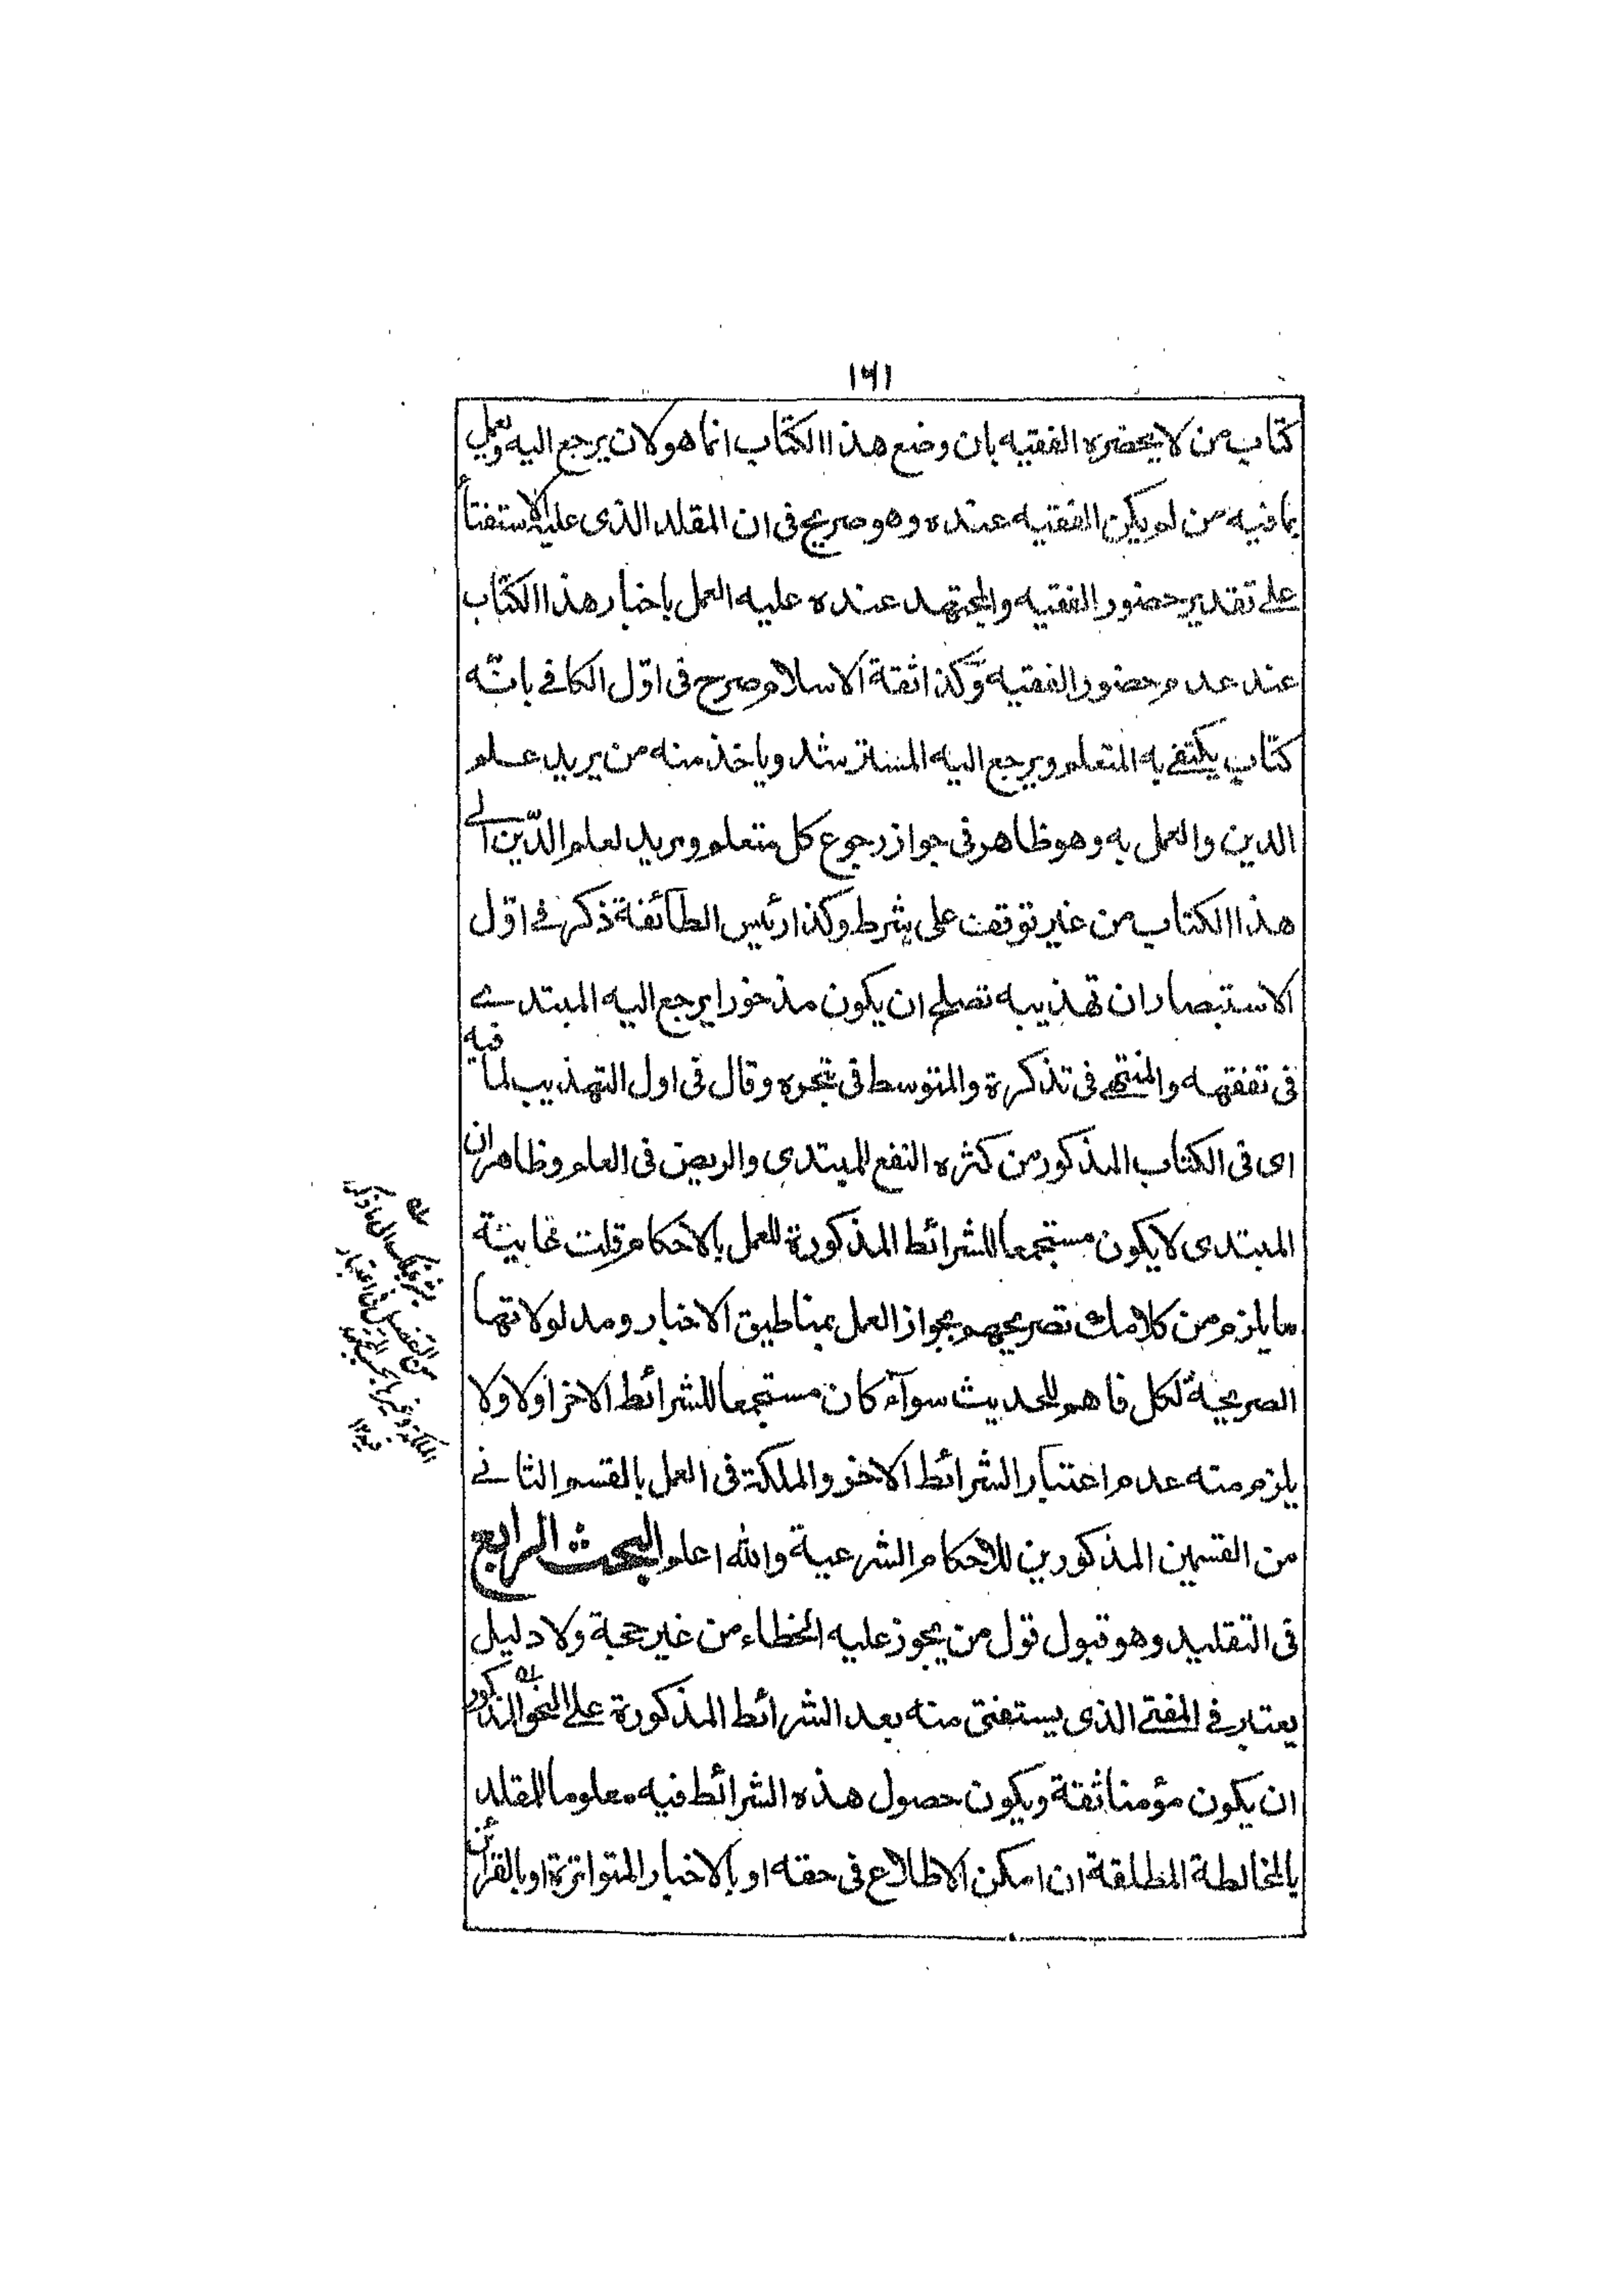 ١٦١
كتاب من لا يحضره الفقيه بان وضع هذا الكتاب انما هو لان يرجع اليه ويعمل
بما فيه من لم يكن الفقيه عنده وهو صريح فى ان المقلد الذى عليه الاستفتأ
على تقدير حضور الفقيه والمجتهد عنده عليه العمل باخبار هذا الكتاب
عند عدم حضور الفقيه وكذا ثقة الاسلام صرح فى اوّل الكافے بانّه
كتاب يكتفے به المتعلم ويرجع اليه المسترشد وياخذ منه من يريد علم
الدين والعمل به وهو ظاهر فى جواز رجوع كل متعلم ومريد لعلم الدّين الے
هذا الكتاب من غير توقف على شرط وكذا رئيس الطائفة ذكر فے اوّل
الاستبصار ان تهذيبه تصلح ان يكون مذخورا يرجع اليه المبتدے
فى تفقهه والمنتهے فى تذكرة والمتوسط فى تبحره وقال فى اول التهذيب لما فيه
اى فى الكتاب المذكور من كثره النفع للمبتدى والريض فى العلم وظاهر ان
المبتدى لا يكون مستجمعا للشرائط المذكورة للعمل بالاحكام قلت غاية
ما يلزم من كلامك تصريحهم بجواز العمل بمناطيق الاخبار ومدلولاتها
الصريحة لكل فاهم للحديث سوآء كان مستجمعا للشرائط الاخر اولا ولا
يلزم منه عدم اعتبار الشرائط الاخر والملكة فى العمل بالقسم الثانے
من القسمين المذكورين للاحكام الشرعية والله اعلم البحث الرابع
فى التقليد وهو قبول قول من يجوز عليه الخطاء من غير حجة ولا دليل
يعتبر فے المفتے الذى يستفتى منه بعد الشرائط المذكورة على النحو المذكور
ان يكون مؤمنا ثقة ويكون حصول هذه الشرائط فيه معلوما للمقلد
بالمخالطة المطلقة ان امكن الاطلاع فى حقه او بالاخبار المتواترة او بالقرائن